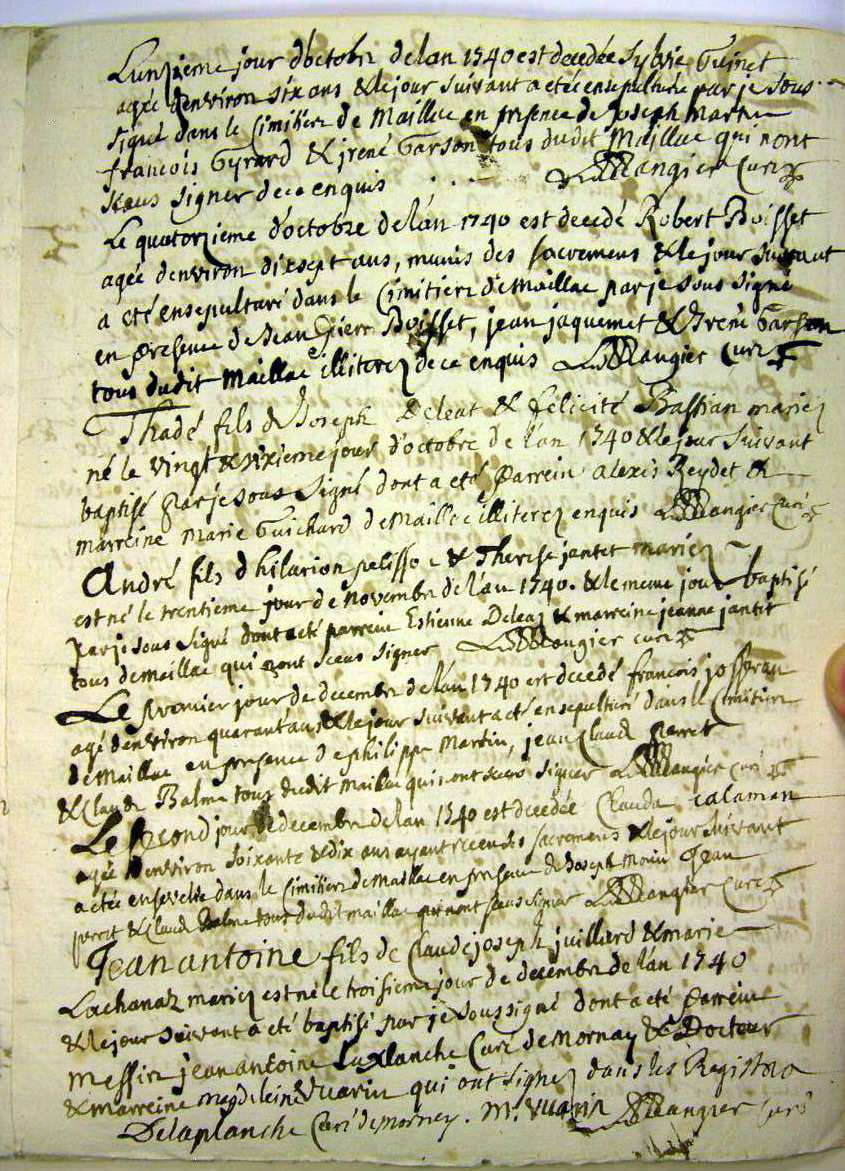 Lunzieme jour d'octobre de lan 1740 est decedée Sylvie Guinet
agée denviron six ans & le jour suivant a etée ensepulturée par je sous
signé dans le Cimitiere de Maillac en presence de Joseph Martin
francois Gyrard & irené Garson tous dudit Maillac qui n'ont
sceus signer de ce enquis Mangier curé
Le quatorzieme d'octobre de lán 1740 est decedé Robert Boisset
agée denviron dixsept ans, munis des sacremens & le jour suivant
a eté ensepulturé dans le Cimitiere de Maillac par je sous signé
en presence de Jean Pierre Boisset, jean jaquemet & Irené Garson
tous dudit Maillac illiterez de ce enquis Mangier Curé
Thadé fils de Joseph Deleat & felicité Bastian mariez
né le vingt & sixieme jour d'octobre de lán 1740 & le jour suivant
baptisé par je sous signé dont a eté parrein alexis Reydet &
marreine marie Guichard de Maillac illiterez enquis Mangier curé
André fils d hilarion pelisson & Therese jantet mariez
est né le trentieme jour de novembre de lán 1740. & le meme jour baptisé
par je sous signé dont a eté parrein Estienne Deleaz & marreine jeanne jantet
tous de maillac qui nont sceus signer Mangier curé
Le premier jour de decembre de lán 1740 est decedé francois josseran
agé denviron quarant ans & le jour suivant a eté ensepulturé dans le Cimitiere
de Maillac en presence de philippe Martin, jean Claude perret
& Claude Balme tous dudit Maillac qui nont sceus signer Mangier curé
Le second jour de decembre de lan 1740 est decedée Clauda calaman
agée denviron soixante & dix ans ayant receu les sacremens & le jour suivant
a etée ensevelie dans le Cimitiere de Maillac en presence de Joseph Jean
perret & Claude balme tous dudit maillac qui nont sceus signer Mangier curé
Jean antoine fils de Claude joseph juillard & marie
Lachanaz mariez est né le troisieme jour de decembre de lán 1740
& le jour suivant a eté baptisé par je sous signé dont a eté parrein
messire jean antoine Laplanche Curé de Mornay & Docteur
& marreine magdeleine Vuarin qui ont signez dans les Registres
Delaplanche Curé de mornay. M. Vuarin Mangier curé